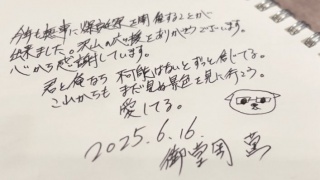 今年も無事に爆誕祭を開催することが
出来ました。沢山の応援をありがとうございます。
心から感謝しています。
君と俺なら 不可能はないとずっと信じてる。
これからも まだ見ぬ景色を見に行こう。
愛してる。
2025.6.16.
御堂岡